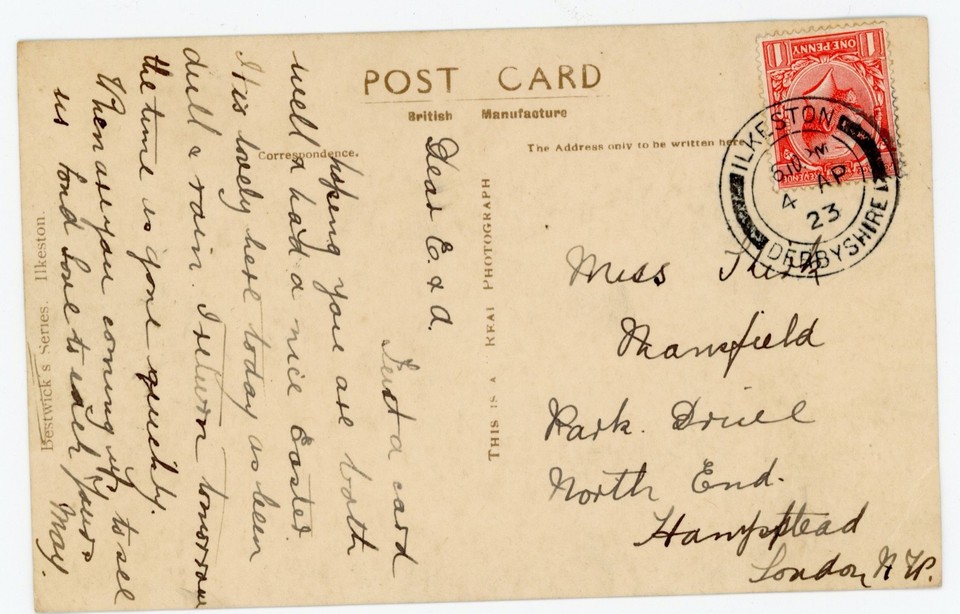 POST CARD
British Manufacture
Correspondence.
The Address only to be written here
THIS IS A REAL PHOTOGRAPH
Bestwick's Series. Ilkeston.
Dear E. & A.
Just a card
hoping you are both
well & had a nice Easter.
It is lovely here today as been
dull & rain. I return tomorrow
the time is gone quickly.
When are you coming up to see
us fond love to each yours
May.
Miss
Mansfield
Park. Drive
North End.
Hampstead
London N W.
ONE PENNY
1 1
REVENUE
ILKESTON
4 AP
23
DERBYSHIRE